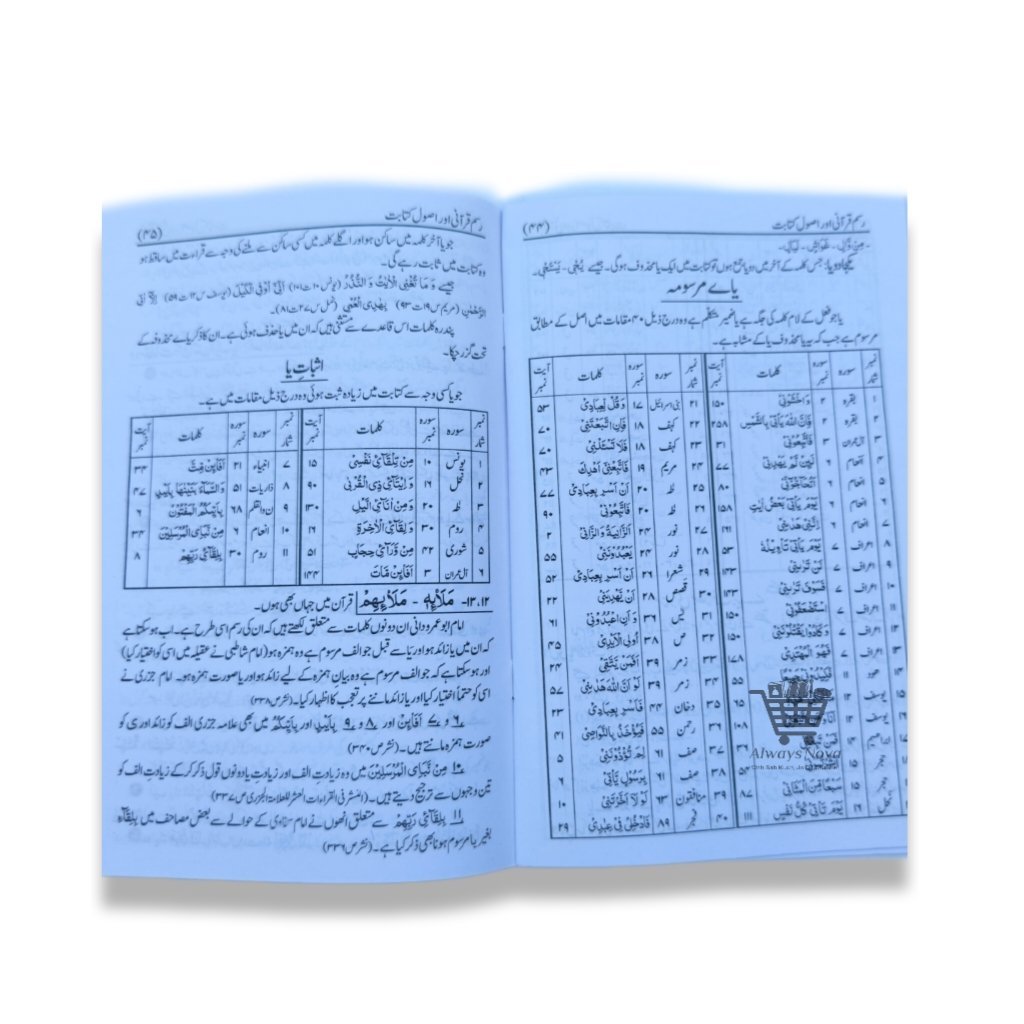 رسم قرآنی اور اصول کتابت (۴۴)
یکجا دو یا: جس کلمہ کے آخر میں دو یا جمع ہوں تو کتابت میں ایک یا محذوف ہوگی۔ جیسے یُحْیٖ۔ یَسْتَحْیٖ۔
یاے مرسومہ
یا جو فعل کے لام کلمہ کی جگہ ہے یا ضمیر متکلم ہے وہ درج ذیل ۴۰ مقامات میں اصل کے مطابق
مرسوم ہے جب کہ یہ یا محذوف یا کے مشابہ ہے۔
نمبر شمار سورہ سورہ نمبر کلمات آیت نمبر نمبر شمار سورہ سورہ نمبر کلمات آیت نمبر
۱ بقرہ ۲ وَاخْشَوْنِیْ ۱۵۰ ۲۱ بنی اسرائیل ۱۷ وَقُلْ لِّعِبَادِیْ ۵۳
۲ بقرہ ۲ فَاِنَّ اللّٰهَ یَاْتِیْ بِالشَّمْسِ ۲۵۸ ۲۲ کہف ۱۸ فَاِنِ اتَّبَعْتَنِیْ ۷۰
۳ آل عمران ۳ فَاتَّبِعُوْنِیْ ۳۱ ۲۳ کہف ۱۸ فَلَا تَسْـَٔلْنِیْ ۷۰
۴ انعام ۶ لَئِنْ لَّمْ یَهْدِنِیْ ۷۷ ۲۴ مریم ۱۹ فَاتَّبِعْنِیْ اَهْدِكَ ۴۳
۵ انعام ۶ اَتُحَآجُّوْنِّیْ ۸۰ ۲۵ طٰہٰ ۲۰ اَنْ اَسْرِ بِعِبَادِیْ ۷۷
۶ انعام ۶ یَوْمَ یَاْتِیْ بَعْضُ اٰیٰتِ ۱۵۸ ۲۶ طٰہٰ ۲۰ فَاتَّبِعُوْنِیْ ۹۰
۷ انعام ۶ هَدٰىنِیْ ۱۶۱ ۲۷ نور ۲۴ اَلزَّانِیَةُ وَالزَّانِیْ ۲
۸ اعراف ۷ یَوْمَ یَاْتِیْ تَاْوِیْلُهٗ ۵۳ ۲۸ نور ۲۴ یَعْبُدُوْنَنِیْ ۵۵
۹ اعراف ۷ لَنْ تَرٰىنِیْ ۱۴۳ ۲۹ شعرا ۲۶ اَنْ اَسْرِ بِعِبَادِیْ ۵۲
۱۰ اعراف ۷ فَسَوْفَ تَرٰىنِیْ ۱۴۳ ۳۰ قصص ۲۸ اَنْ یَّهْدِیَنِیْ
۱۱ اعراف ۷ اسْتَضْعَفُوْنِیْ ۱۵۰ ۳۱ یٰس وَاَنِ اعْبُدُوْنِیْ ۶۱
۱۲ اعراف ۷ وَكَادُوْا یَقْتُلُوْنَنِیْ ۱۵۰ ۳۲ ص ۳۸ اُولِی الْاَیْدِیْ ۴۵
۱۳ اعراف ۷ فَهُوَ الْمُهْتَدِیْ ۱۷۸ ۳۳ زمر ۳۹ اَفَمَنْ یَّتَّقِیْ ۲۴
ہود فَكِیْدُوْنِیْ ۵۵ ۳۴ زمر ۳۹ لَوْ اَنَّ اللّٰهَ هَدٰىنِیْ ۵۷
یوسف ۳۵ دخان ۴۴ فَاَسْرِ بِعِبَادِیْ ۲۳
یوسف ۱۰۸ ۳۶ رحمٰن ۵۵ فَیُؤْخَذُ بِالنَّوَاصِیْ ۴۱
ابراہیم ۳۷ صف ۶۱ لِمَ تُؤْذُوْنَنِیْ ۵
حجر ۳۸ صف ۶۱ بِرَسُوْلٍ یَّاْتِیْ ۶
حجر ۱۵ سَبْعًا مِّنَ الْمَثَانِیْ ۸۷ ۳۹ منافقون ۶۳ لَوْلَآ اَخَّرْتَنِیْ ۱۰
نحل یَوْمَ تَاْتِیْ كُلُّ نَفْسٍ ۱۱۱ ۴۰ فجر ۸۹ فَادْخُلِیْ فِیْ عِبٰدِیْ ۲۹
AlwaysNova
رسم قرآنی اور اصول کتابت (۴۵)
جو یا آخر کلمہ میں ساکن ہو اور اگلے کلمہ میں کسی ساکن سے ملنے کی وجہ سے قراءت میں ساقط ہو
وہ کتابت میں ثابت رہے گی۔
جیسے وَمَا تُغْنِی الْاٰیٰتُ وَالنُّذُرُ (یونس ۱۰ ت ۱۰۱) اَنِّیْۤ اُوْفِی الْكَیْلَ (یوسف س ۱۲ ت ۵۹) اِلَّاۤ اٰتِی
الرَّحْمٰنِ (مریم س ۱۹ ت ۹۳) بِهٰدِی الْعُمْیِ (نمل س ۲۷ ت ۸۱)۔
پندرہ کلمات اس قاعدے سے مستثنیٰ ہیں کہ ان میں یا حذف ہوئی ہے۔ ان کا ذکر یاے محذوف کے
تحت گزر چکا۔
اثباتِ یا
جو یا کسی وجہ سے کتابت میں زیادہ ثبت ہوئی وہ درج ذیل مقامات میں ہے۔
نمبر شمار سورہ سورہ نمبر کلمات آیت نمبر نمبر شمار سورہ سورہ نمبر کلمات آیت نمبر
۱ یونس ۱۰ مِنْ تِلْقَآئِ نَفْسِیْ ۱۵ ۷ انبیاء ۲۱ اَفَا۟ئِنْ مِّتَّ ۳۴
۲ نحل ۱۶ وَاِیْتَآئِ ذِی الْقُرْبٰی ۹۰ ۸ ذاریات ۵۱ وَالسَّمَآءَ بَنَیْنٰهَا بِاَیْىدٍ ۴۷
۳ طٰہٰ ۲۰ وَمِنْ اٰنَآئِ الَّیْلِ ۱۳۰ ۹ ن والقلم ۶۸ بِاَیِّىكُمُ الْمَفْتُوْنُ ۶
۴ روم ۳۰ وَلِقَآئِ الْاٰخِرَةِ ۱۶ ۱۰ انعام ۶ مِنْ نَّبَاِی الْمُرْسَلِیْنَ ۳۴
۵ شوریٰ ۴۲ مِنْ وَّرَآئِ حِجَابٍ ۵۱ ۱۱ روم ۳۰ بِلِقَآئِ رَبِّهِمْ ۸
۶ آل عمران ۳ اَفَا۟ئِنْ مَّاتَ ۱۴۴
۱۲، ۱۳۔ مَلَا۟ئِهٖ - مَلَا۟ئِهِمْ قرآن میں جہاں بھی ہوں۔
امام ابو عمرو دانی ان دونوں کلمات سے متعلق لکھتے ہیں کہ ان کی رسم اسی طرح ہے۔ اب ہوسکتا ہے
کہ ان میں یا زائد ہو اور یا سے قبل جو الف مرسوم ہے وہ ہمزہ ہو (امام شاطبی نے عقیلہ میں اسی کو اختیار کیا)
اور ہوسکتا ہے کہ جو الف مرسوم ہے وہ بیان ہمزہ کے لیے زائد ہو اور یا صورت ہمزہ ہو۔ امام جزری نے
اسی کو حتماً اختیار کیا اور یا زائد ماننے پر تعجب کا اظہار کیا۔ (نشر ص ۳۳۸)
۶ و ۷ اَفَا۟ئِنْ اور ۸ و ۹ بِاَیْىدٍ اور بِاَیِّىكُمْ میں بھی علامہ جزری الف کو زائد اور ی کو
صورت ہمزہ مانتے ہیں۔ (نشر ص ۳۴۰)
۱۰ مِنْ نَّبَاِی الْمُرْسَلِیْنَ میں وہ زیادتِ الف اور زیادتِ یا دونوں قول ذکر کرکے زیادتِ الف کو
تین وجہوں سے ترجیح دیتے ہیں۔ (النشر فی القراءات العشر للعلامۃ الجزری ص ۳۳۷)
۱۱ بِلِقَآئِ رَبِّهِمْ سے متعلق انھوں نے امام سخاوی کے حوالے سے بعض مصاحف میں بِلِقَآءِ
بغیر یا مرسوم ہونا بھی ذکر کیا ہے۔ (نشر ص ۳۳۶)